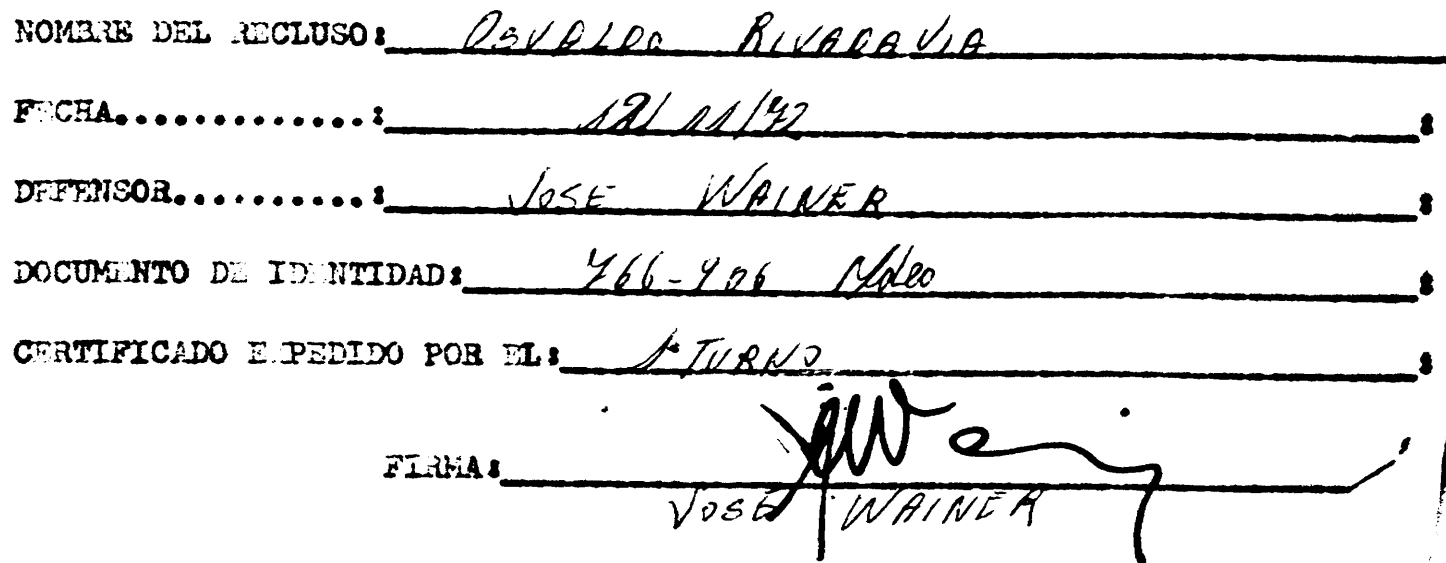 NOMBRE DEL RECLUSO: OSVALDO RIVADAVIA
FECHA.............: 12/11/72 :
DEFENSOR..........: JOSE WAINER :
DOCUMENTO DE IDENTIDAD: 766-906 Mdeo :
CERTIFICADO EXPEDIDO POR EL: 1º TURNO :
FIRMA:
JOSE WAINER